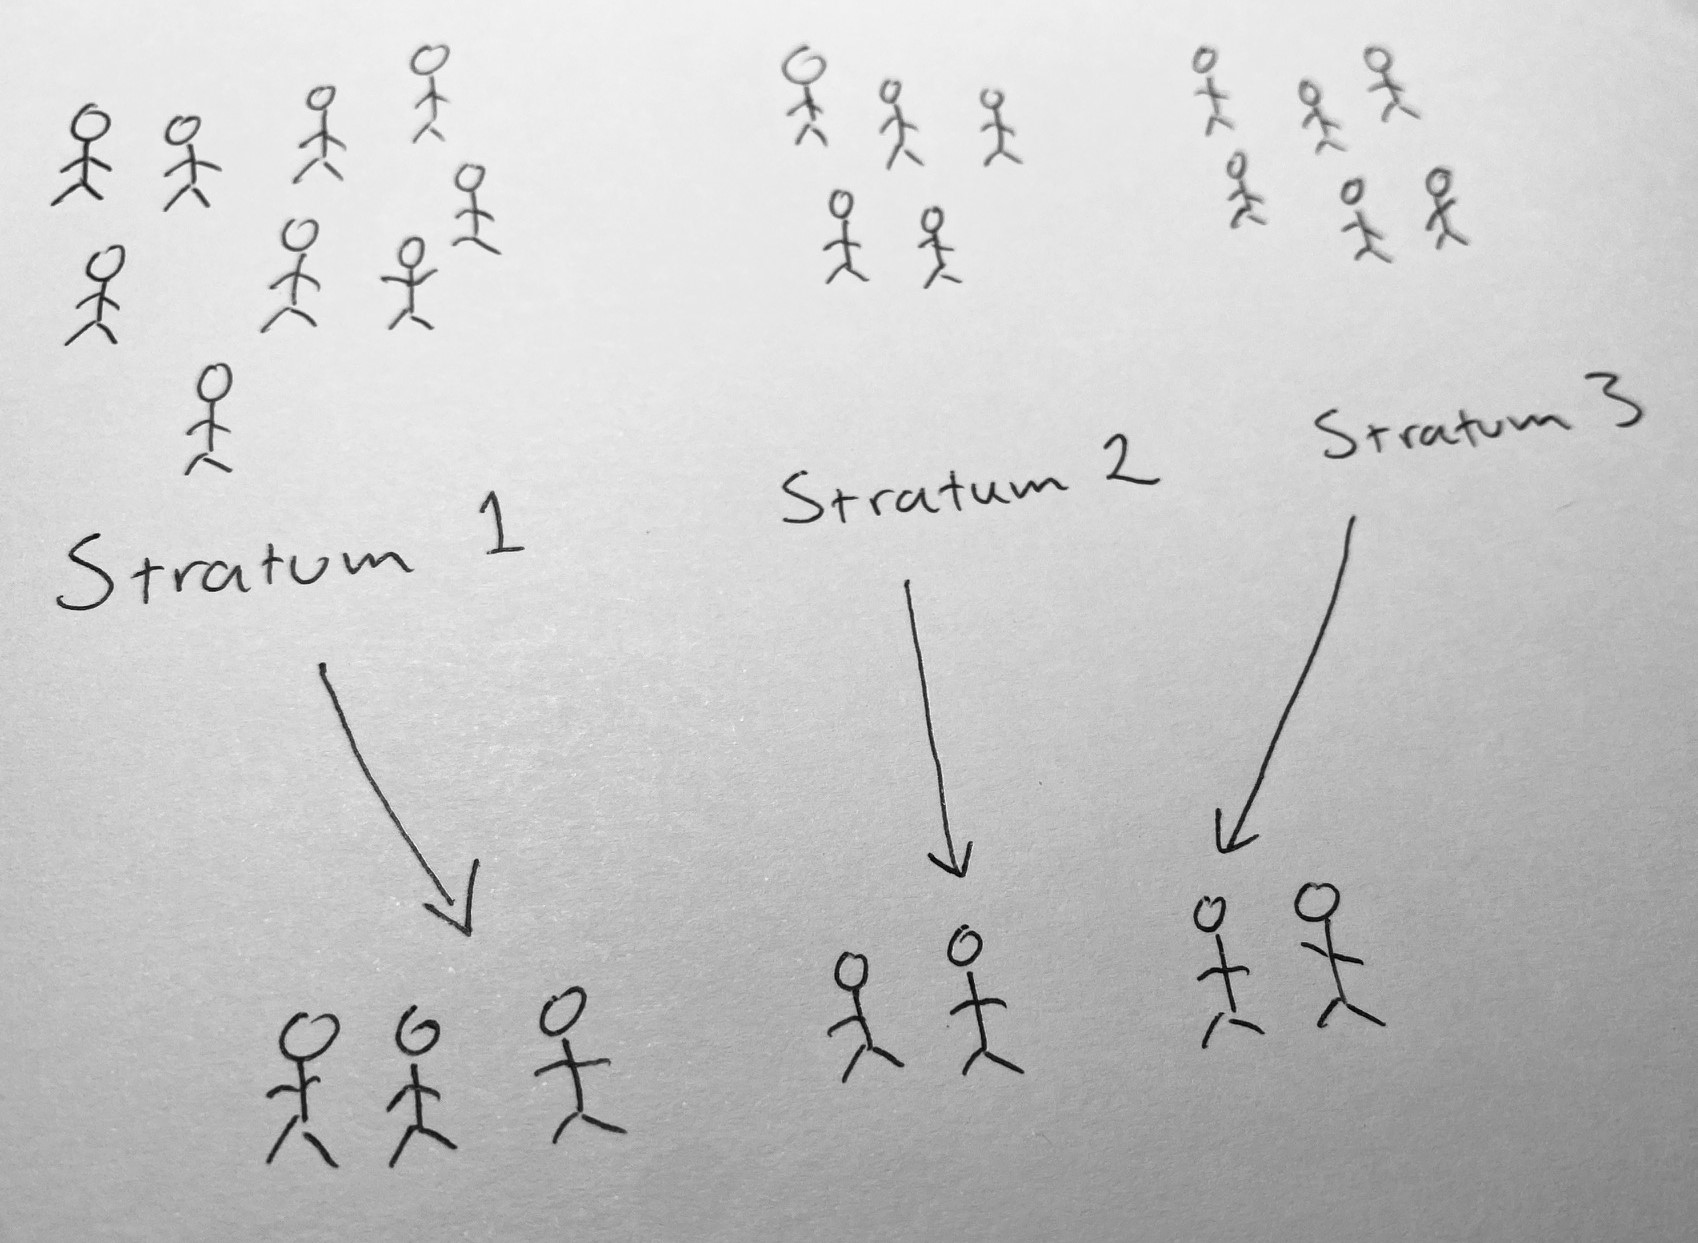 Stratum 1
Stratum 2
Stratum 3